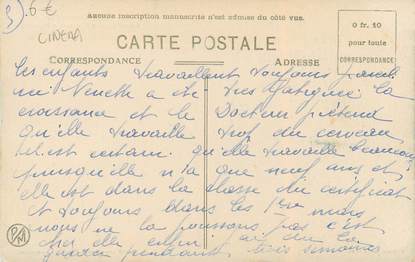 3) 6€
CINEMA
Aucune inscription manuscrite n'est admise du côté vue.
0 fr. 10
pour toute
CORRESPONDANCE
CARTE POSTALE
CORRESPONDANCE
ADRESSE
Les enfants travaillent toujours
Ninette a été très fatiguée la
croissance et le Docteur prétend
qu'elle travaille trop du cerveau
c'est certain qu'elle travaille beaucoup
puisqu'elle n'a que neuf ans et
elle est dans la classe du certificat
et toujours dans les 1ères mais
nous ne la poussons pas c'est
elle enfin
pendant trois semaines
PM